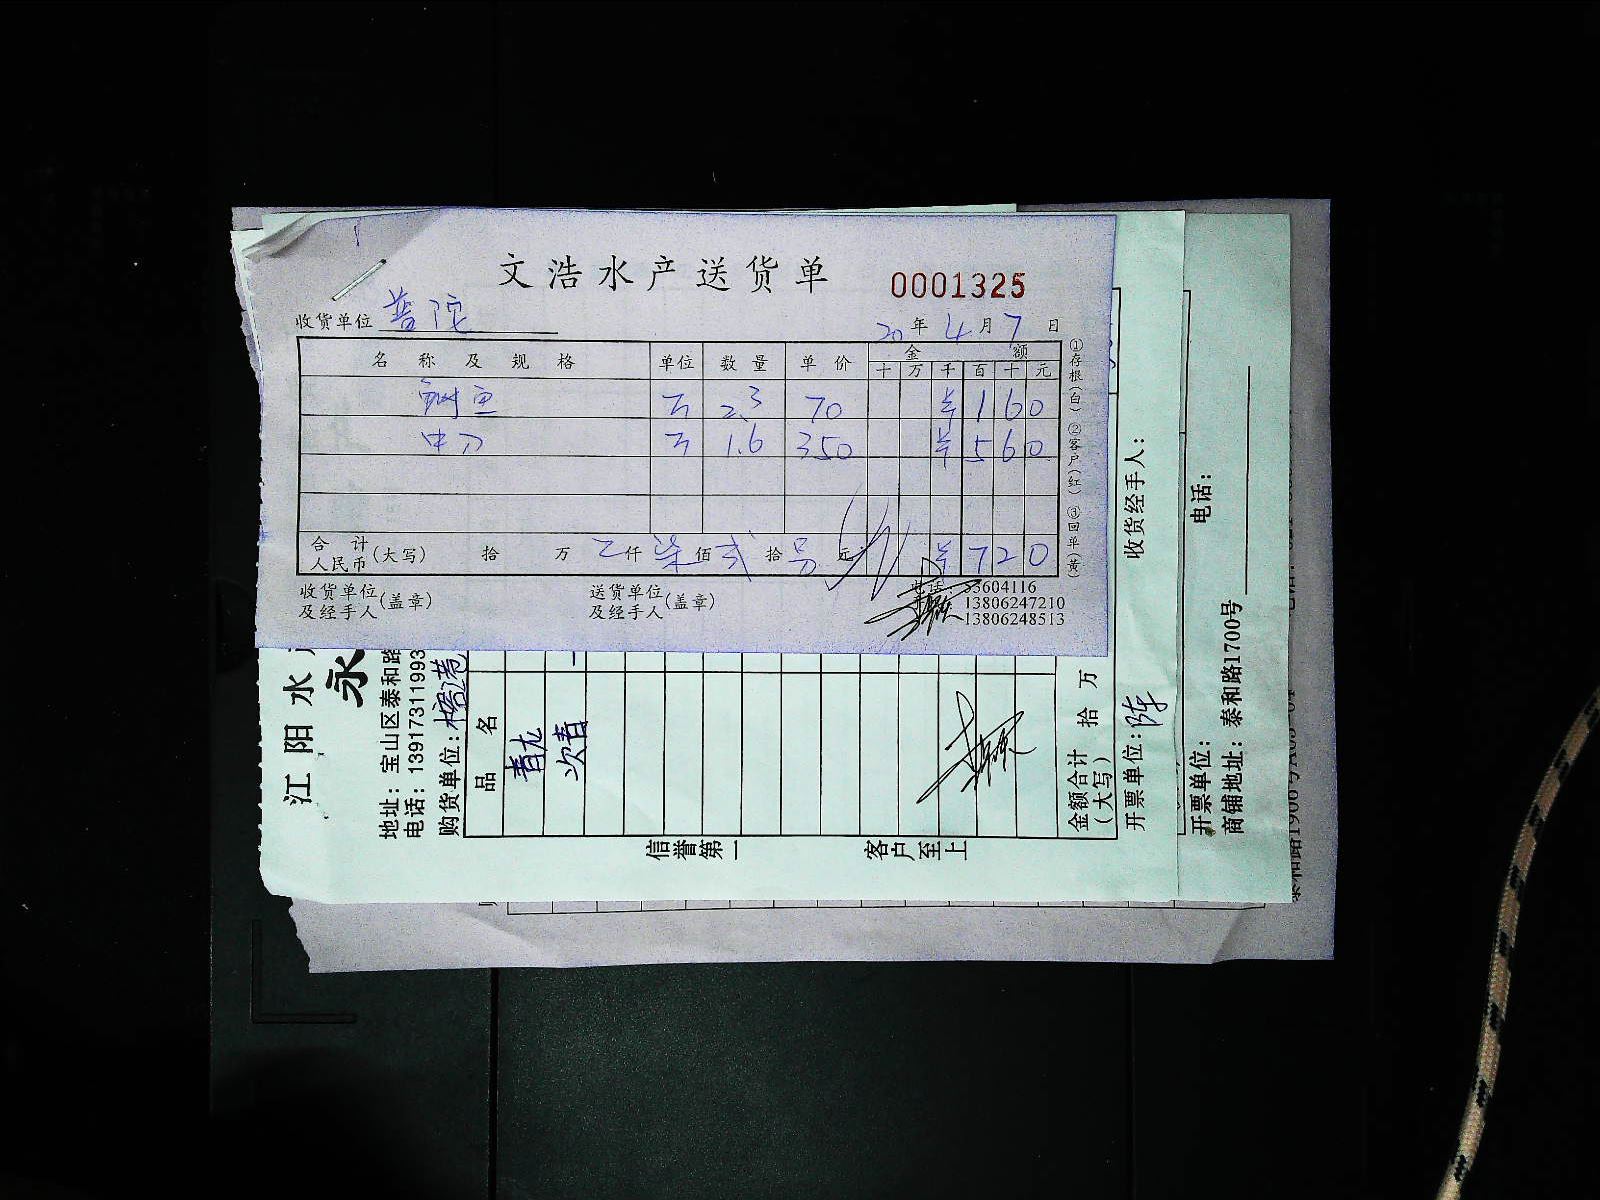 文浩水产送货单
0001325
收货单位 普陀
20年4月7日
名称及规格 单位 数量 单价 金额
十 万 千 百 十 元
鱼 2.3 70 160
中刀 1.6 350 560
合计人民币(大写) 拾 万 仟 柒 佰 弍 拾 元 720
收货单位及经手人(盖章) 送货单位及经手人(盖章)
电话:
13806247210
13806248513
①存根(白) ②客户(红) ③回单(黄)
江阳水
永
地址:宝山区泰和路
电话:13917311993
购货单位:
品名
青龙
次青
金额合计(大写) 拾 万
开票单位:陈
收货经手人:
信誉第一 客户至上
开票单位:
电话:
商铺地址:泰和路1700号